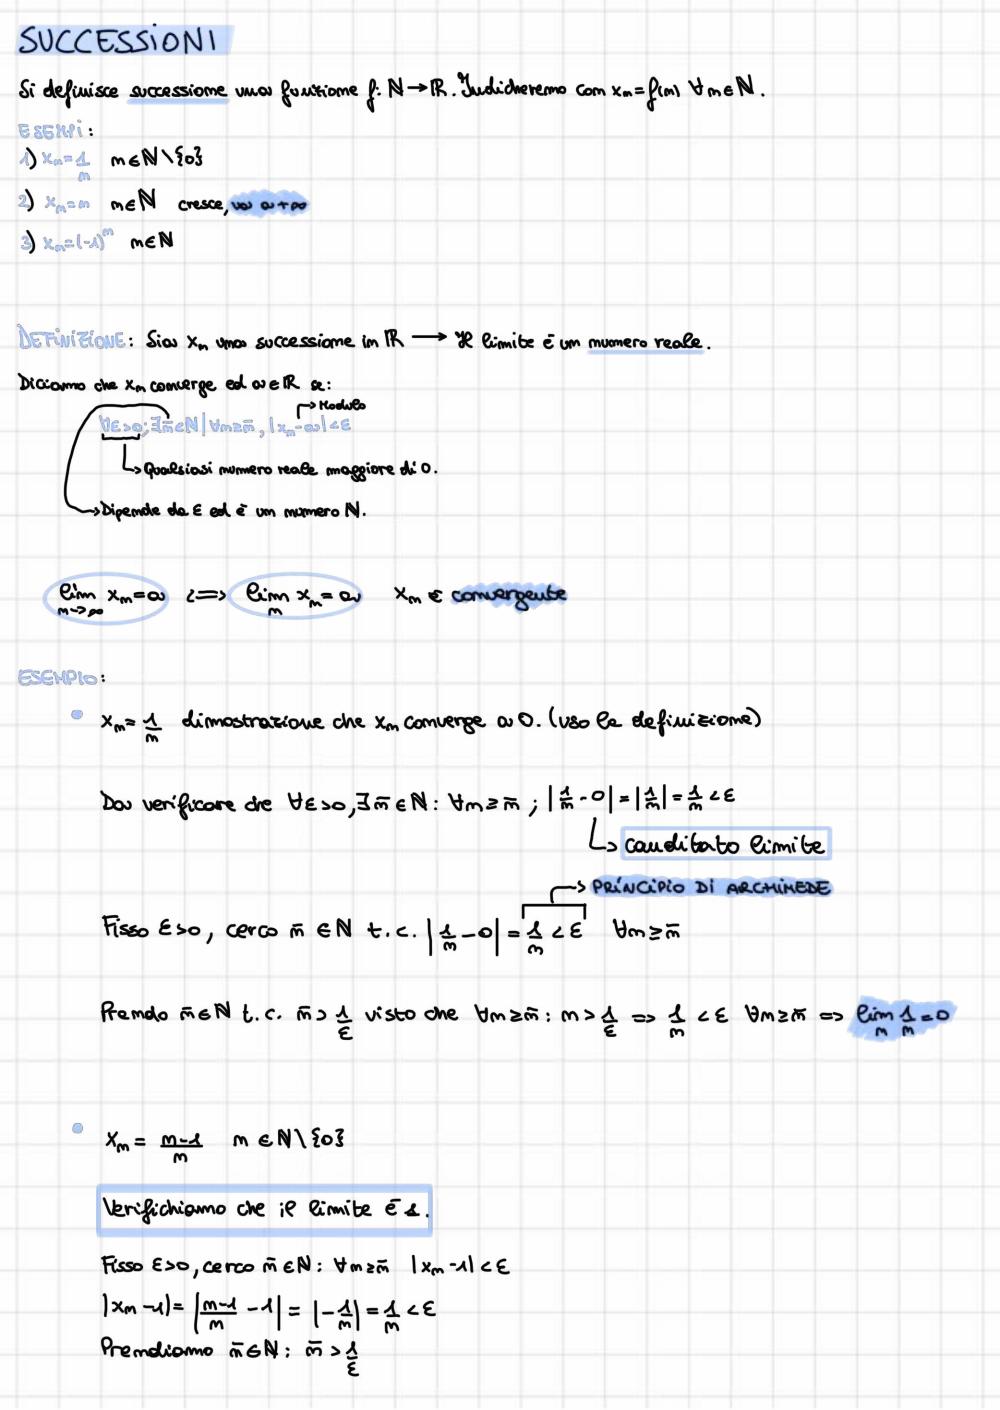 SUCCESSIONI
Si definisce successione una funzione f: ℕ→ℝ. Indicheremo con xₙ=f(n) ∀n∈ℕ.
ESEMPI:
1) xₙ=1/n n∈ℕ\{0}
2) xₙ=n n∈ℕ cresce, va a +∞
3) xₙ=(-1)ⁿ n∈ℕ
DEFINIZIONE: Sia xₙ una successione in ℝ → Il limite è un numero reale.
Diciamo che xₙ converge ad a∈ℝ se:
→Modulo
∀ε>0; ∃n̄∈ℕ | ∀n≥n̄, |xₙ-a|<ε
→Qualsiasi numero reale maggiore di 0.
→Dipende da ε ed è un numero ℕ.
lim n->∞ xₙ=a <=> lim n xₙ=a xₙ è convergente
ESEMPIO:
• xₙ=1/n dimostrazione che xₙ converge a 0. (uso la definizione)
Da verificare che ∀ε>0, ∃n̄∈ℕ: ∀n≥n̄; |1/n-0|=|1/n|=1/n<ε
→ candidato limite
→ PRINCIPIO DI ARCHIMEDE
Fisso ε>0, cerco n̄∈ℕ t.c. |1/n-0|=1/n<ε ∀n≥n̄
Prendo n̄∈ℕ t.c. n̄>1/ε visto che ∀n≥n̄: n>1/ε => 1/n<ε ∀n≥n̄ => lim n 1/n=0
• xₙ=(n-1)/n n∈ℕ\{0}
Verifichiamo che il limite è 1.
Fisso ε>0, cerco n̄∈ℕ: ∀n≥n̄ |xₙ-1|<ε
|xₙ-1|=|(n-1)/n-1|=|-1/n|=1/n<ε
Prendiamo n̄∈ℕ: n̄>1/ε